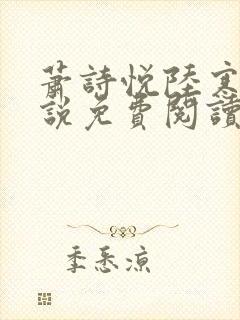 蕭詩悅陸寒
說免費閱讀
季悉凉